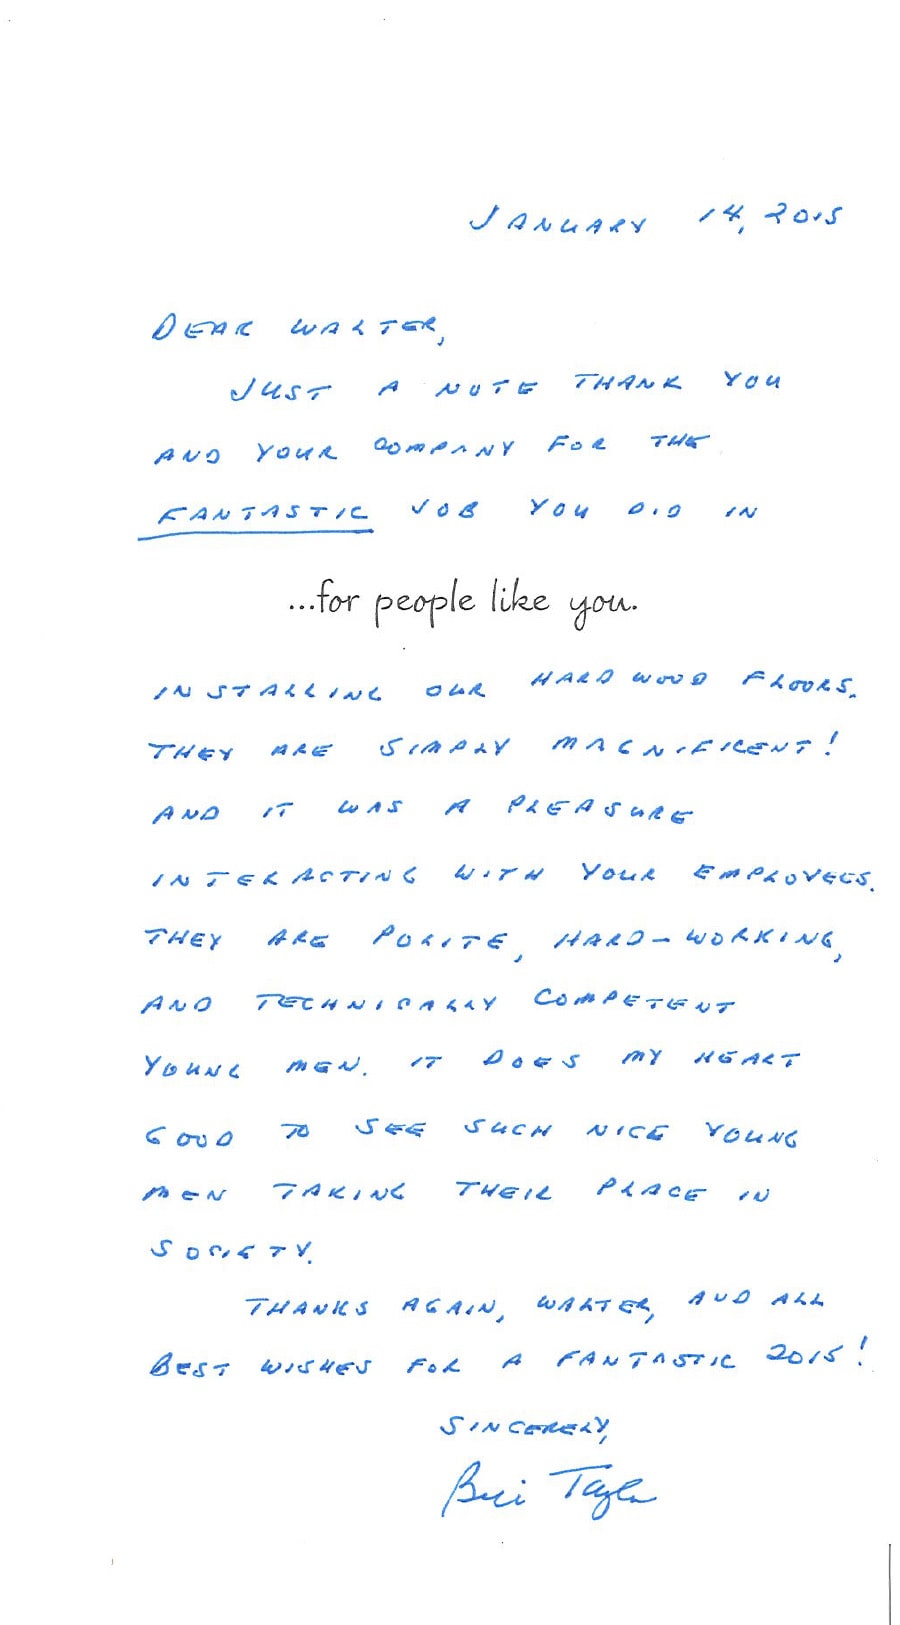 JANUARY 14, 2015
DEAR WALTER,
JUST A NOTE THANK YOU
AND YOUR COMPANY FOR THE
FANTASTIC JOB YOU DID IN
...for people like you.
INSTALLING OUR HARDWOOD FLOORS.
THEY ARE SIMPLY MAGNIFICENT!
AND IT WAS A PLEASURE
INTERACTING WITH YOUR EMPLOYEES.
THEY ARE POLITE, HARD-WORKING,
AND TECHNICALLY COMPETENT
YOUNG MEN. IT DOES MY HEART
GOOD TO SEE SUCH NICE YOUNG
MEN TAKING THEIR PLACE IN
SOCIETY.
THANKS AGAIN, WALTER, AND ALL
BEST WISHES FOR A FANTASTIC 2015!
SINCERELY,
Bill Taylor